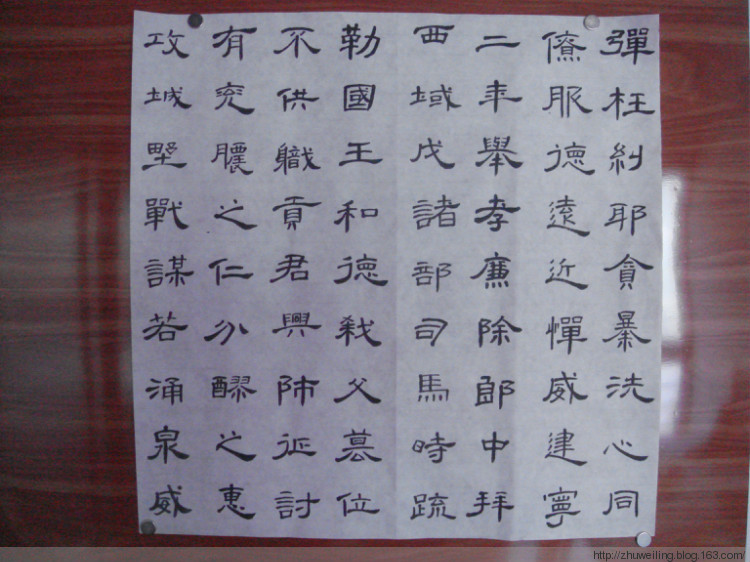 彈枉糾耶貪暴洗心同
僚服德遠近憚威建寧
二年舉孝廉除郎中拜
西域戊諸部司馬時疏
勒國王和德弒父篡位
不供職貢君興師征討
有兗膿之仁分醪之惠
攻城野戰謀若涌泉威
http://zhuweiling.blog.163.com/